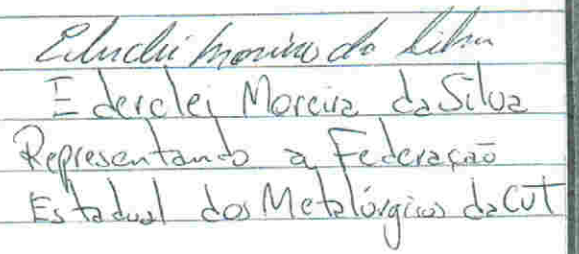 Ederclei Moreira da Silva
Ederclei Moreira da Silva
Representando a Federação
Estadual dos Metalúrgicos da CUT